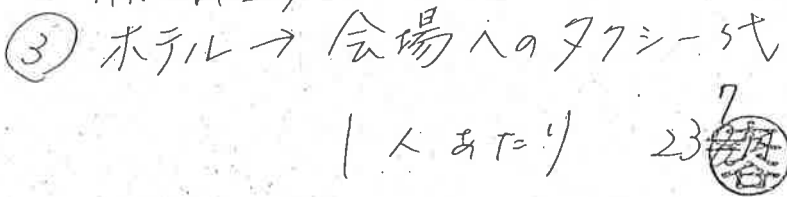 ③ ホテル → 会場へのタクシー代
1人あたり 237